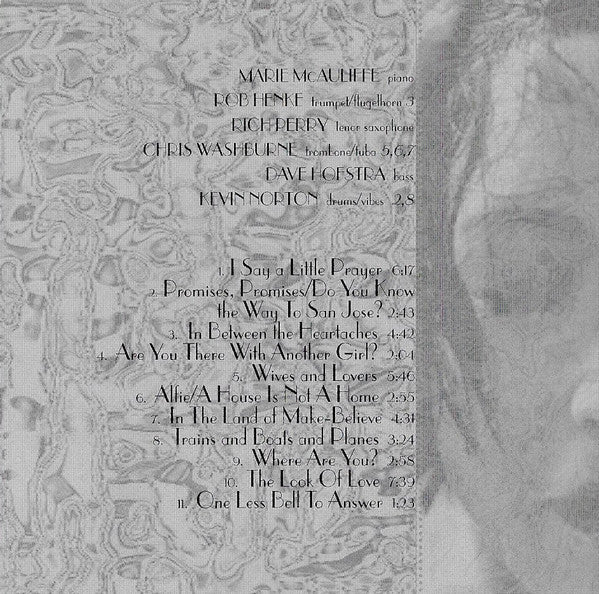 MARIE McAULIFFE piano
ROB HENKE trumpet/flugelhorn 3
RICH PERRY tenor saxophone
CHRIS WASHBURNE trombone/tuba 5,6,7
DAVE HOFSTRA bass
KEVIN NORTON drums/vibes 2,8
1. I Say a Little Prayer 6:17
2. Promises, Promises/Do You Know
the Way To San Jose? 2:43
3. In Between the Heartaches 4:42
4. Are You There With Another Girl? 2:04
5. Wives and Lovers 5:46
6. Alfie/A House Is Not A Home 2:55
7. In The Land of Make-Believe 4:31
8. Trains and Boats and Planes 3:24
9. Where Are You? 2:58
10. The Look Of Love 7:39
11. One Less Bell To Answer 1:23